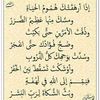 إذا أرهقتك هموم الحياة
ومسك منها عظيم الضرر
وذقت الأمرين حتى بكيت
وضج فؤادك حتى انفجر
وسدت بوجهك كل الدروب
وأوشكت تسقط بين الحفر
فيمم إلى الله في لهفة